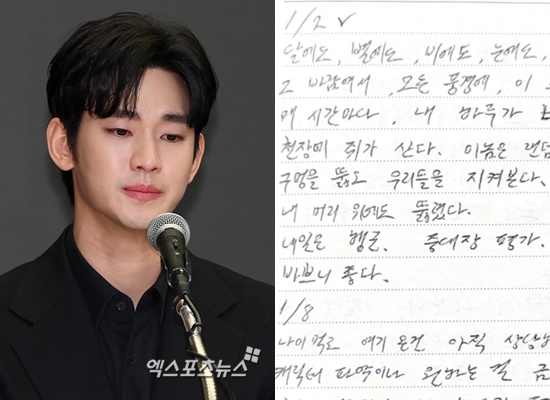 1/2 ✓
달에도, 별에도, 비에도, 눈에도,
그 바람에서, 모든 풍경에, 이
매 시간마다, 내 하루가
천장에 쥐가 산다. 이놈은 랜덤
구멍을 뚫고 우리들을 지켜본다.
내 머리 위에도 뚫렸다.
내일은 행군. 중대장 평가.
바쁘니 좋다.
1/8
나이 먹고 여기 온건 아직
캐릭터 파악이나 원하는 걸
엑스포츠뉴스